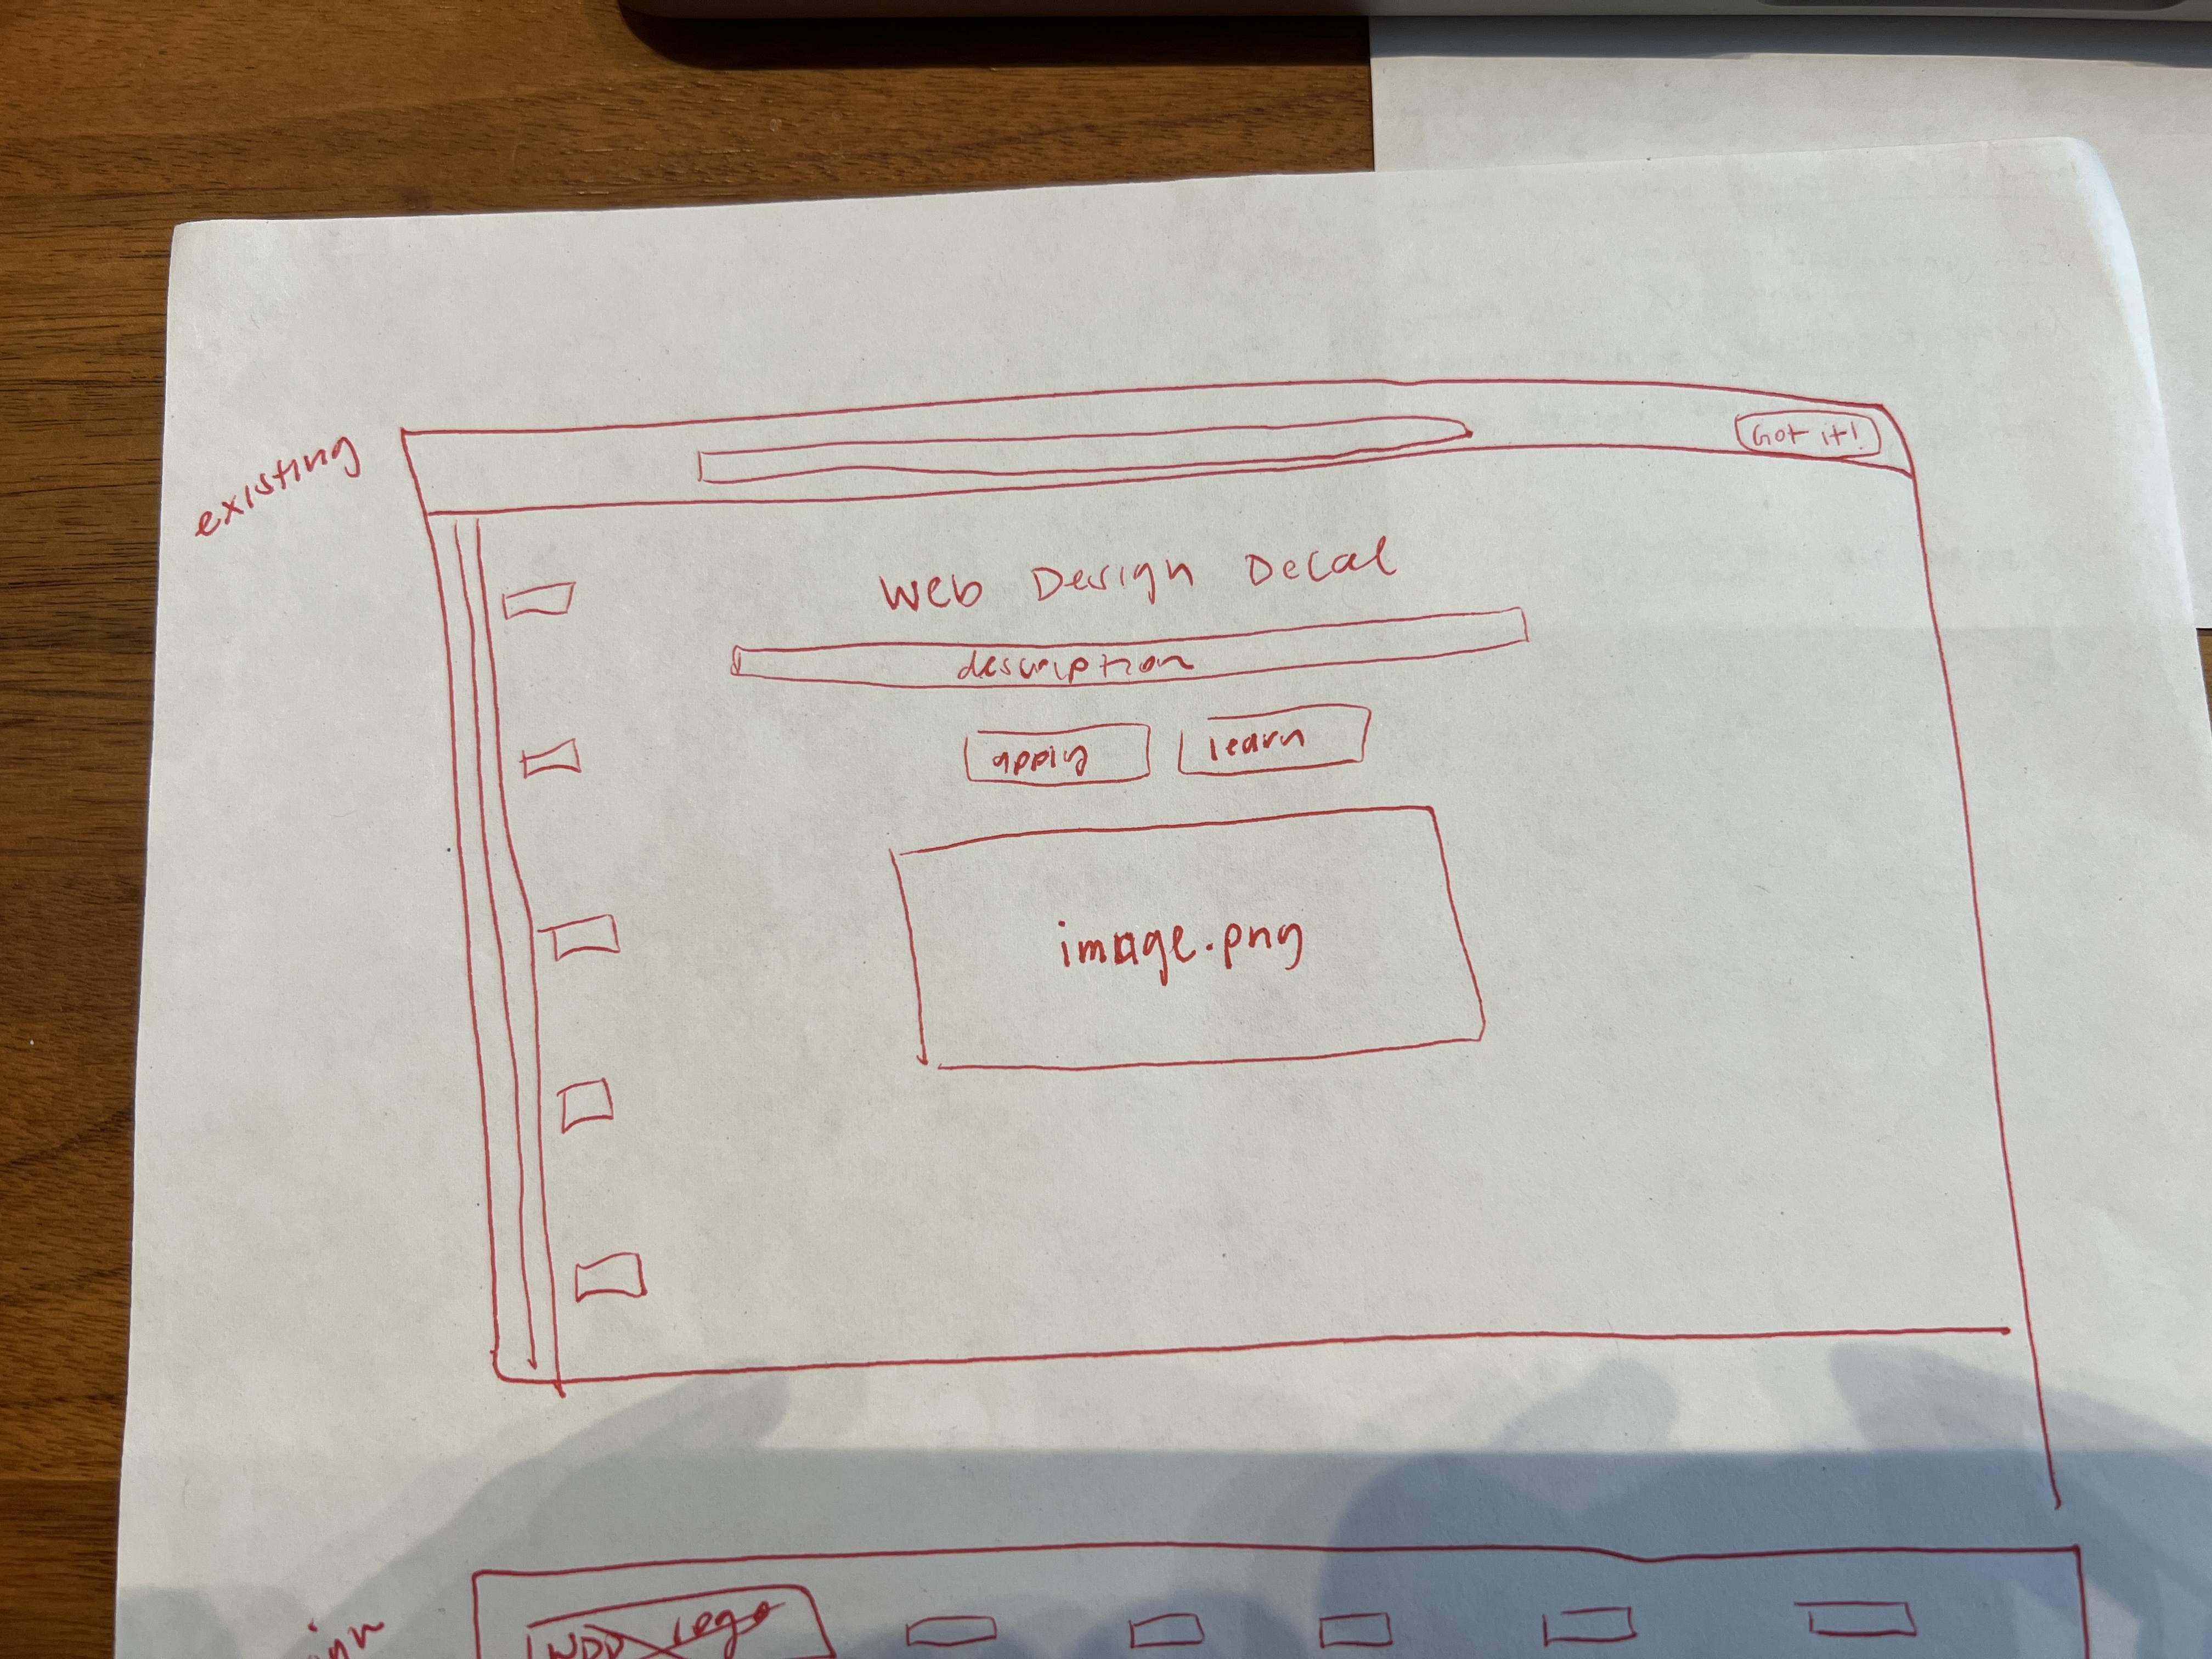 existing
Got it!
Web Design Decal
description
apply learn
image.png
WDD logo